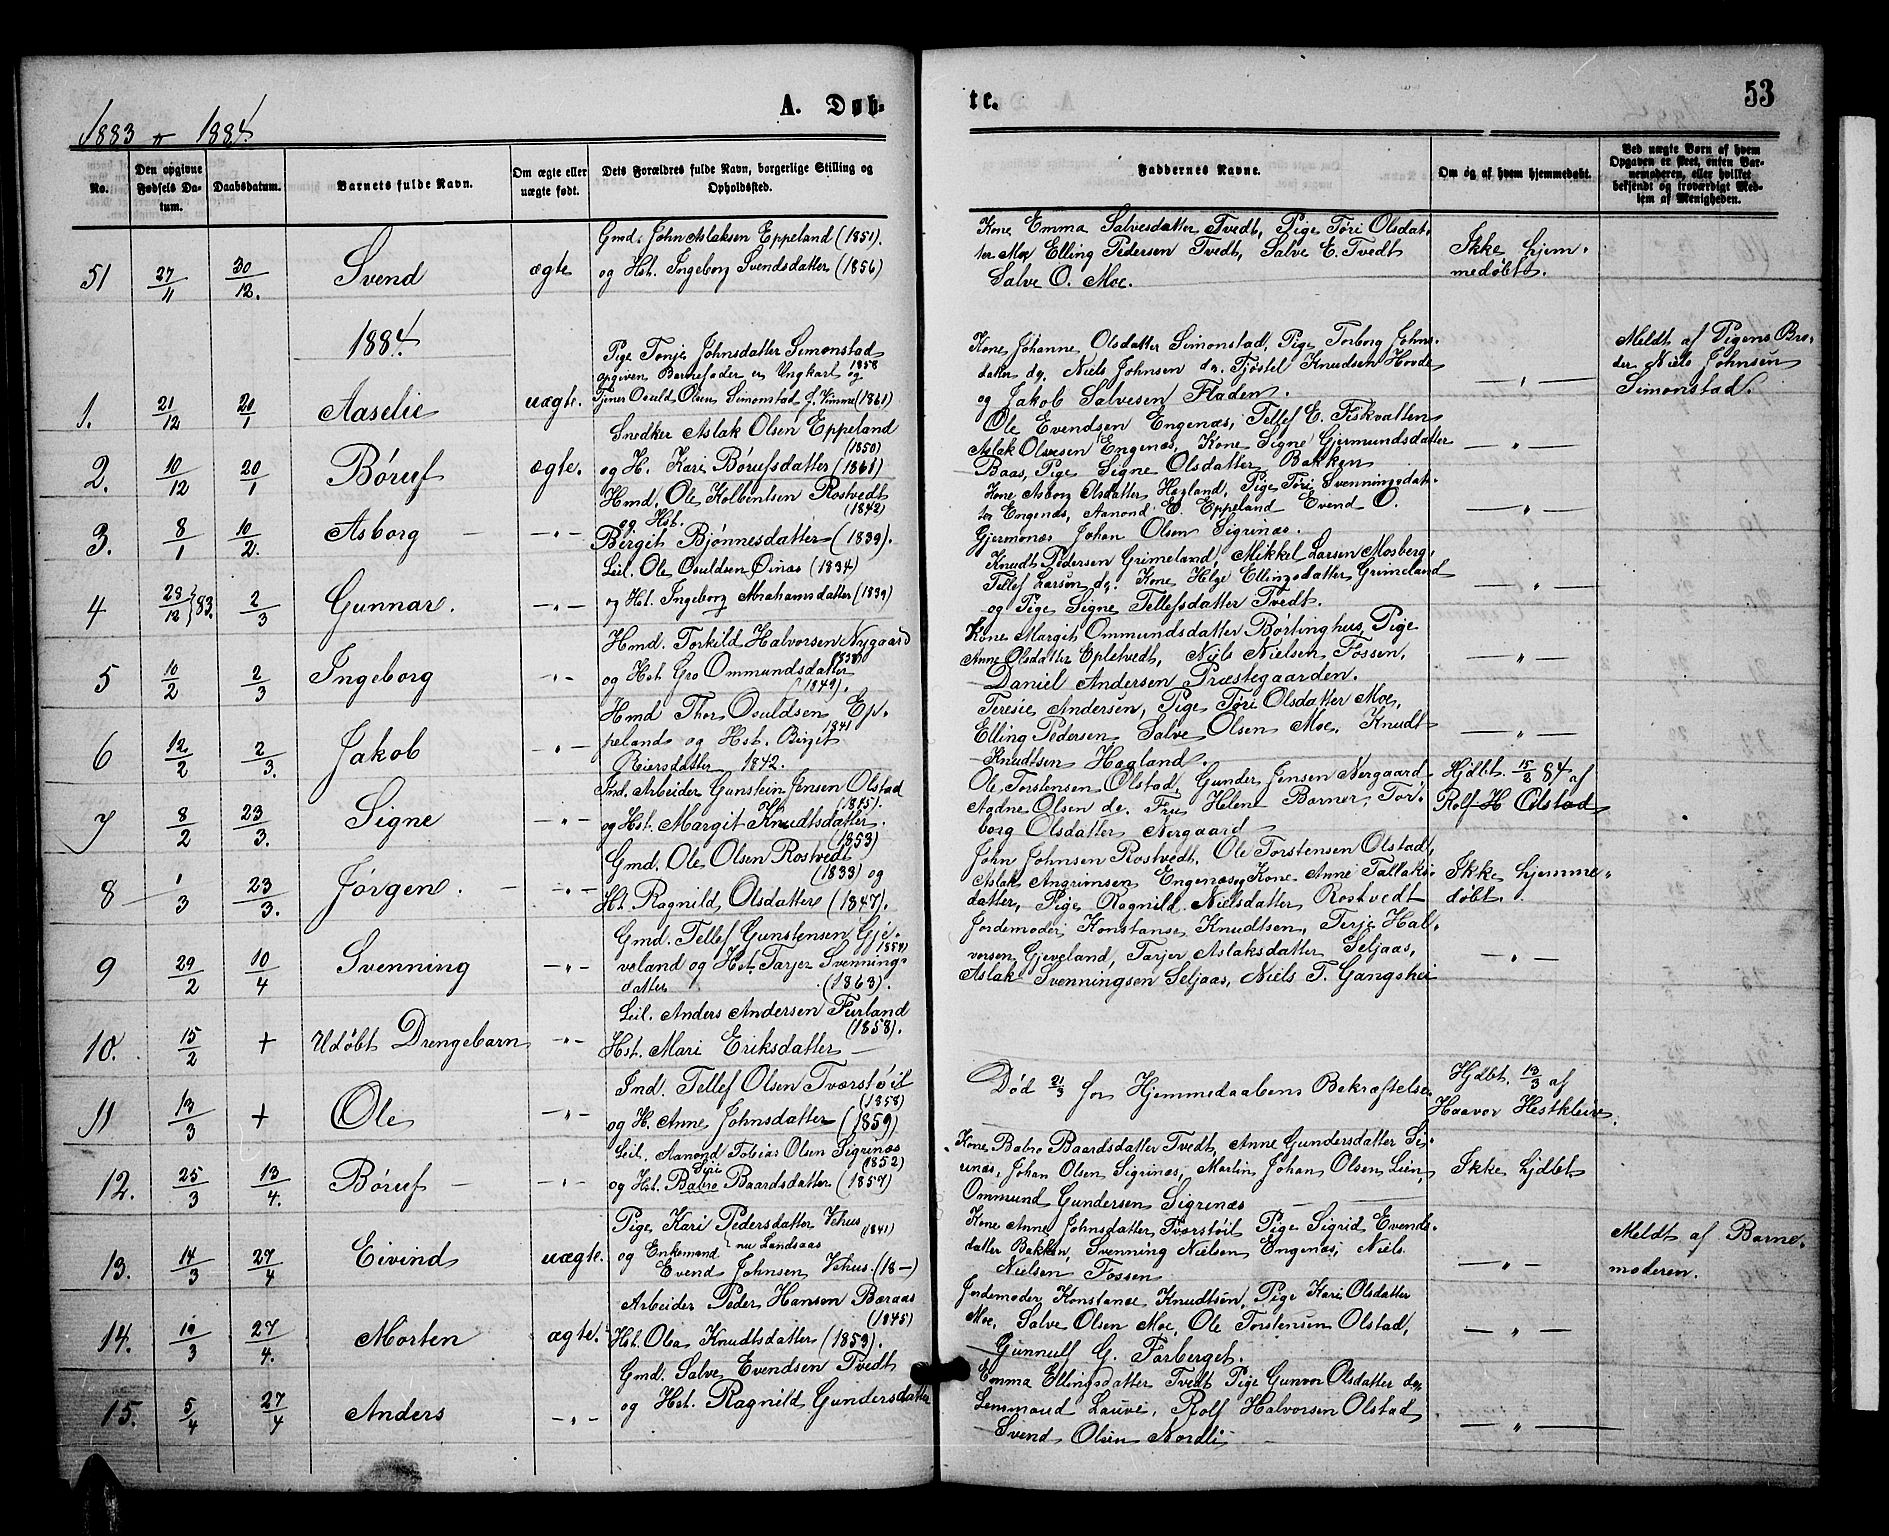 1883 " 1884.
A. Døb-
te.
53
No.
Den opgivne Fødsels Datum.
Daabsdatum.
Barnets fulde Navn.
Om ægte eller uægte født.
Dets Forældres fulde Navn, borgerlige Stilling og Opholdssted.
Faddernes Navne.
Om og af hvem hjemmedøbt.
Ved uægte Børn af hvem Opgaven er skeet, enten Barnemoderen, eller hvilket bekjendt og troværdigt Medlem af Menigheden.
51 27/11 30/12. Svend ægte
Gmd. John Aslaksen Eppeland (1851).
og Hst. Ingeborg Svendsdatter (1856)
Kone Emma Salvesdatter Tvedt, Pige Tøri Olsdat-
ter Moe Elling Pedersen Tvedt, Salve E. Tvedt
Salve O. Moe.
Ikke hjem-
medøbt.
1884.
1. 21/12 20/1 Aaselie uægte.
Pige Tonje Johnsdatter Simonstad
1858
opgiven Barnefader er Ungkarl og
Tjener Osuld Olsen Simonstad f. Vimme (1861)
Kone Johanne Olsdatter Simonstad, Pige Torborg Johns-
datter dg. Niels Johnsen dg. Tjøstel Knudsen Hovde
og Jakob Salvesen Fladen.
— " —
Meldt af Pigens Bro-
der Niels Johnsen
Simonstad.
2. 10/12 20/1 Børuf ægte.
Snedker Aslak Olsen Eppeland
(1850)
og H. Kari Børufsdatter (1861)
Ole Evendsen Engenæs, Tellef E. Fiskvatten
Aslak Olsen Engenæs, Kone Signe Gjermundsdatter
Baas, Pige Signe Olsdatter Bakken
— " —
3. 8/1 10/2. Asborg — " —
Hmd. Ole Kolbentsen Rostvedt
(1842)
og Hst.
Bergit Bjønnesdatter (1839).
Kone Asborg Olsdatter Hogland, Pige Tøri Svenningsdat-
ter Engenæs, Aanond O. Eppeland Evend O.
Gjermonæs Johan Olsen Sigrinæs.
— " —
4 28/12 83. 2/3 Gunnar. — " —
Leil. Ole Osuldsen Øinæs (1834)
og Hst. Ingeborg Abrahamsdatter (1839)
Knudt Pedersen Grimeland, Mikkel Larsen Mosberg,
Tellef Larsen dg. Kone Helge Ellingsdatter Grimeland
og Pige Signe Tellefsdatter Tvedt.
— " —
5 10/2 2/3 Ingeborg — " —
Hmd. Torkild Halvorsen Nygaard
og Hst Gro Ommundsdatter
(1849).
Kone Margit Ommundsdatter Bortinghus, Pige
Anne Olsdatter Epletvedt, Niels Nielsen Fossen,
Daniel Andersen Præstegaarden.
— " —
6 12/2 2/3. Jakob — " —
Hmd Thor Osuldsen Ep-
1841
peland og Hst. Birgit
Reiersdatter 1842.
Teresie Andersen, Pige Tøri Olsdatter Moe,
Elling Pedersen Salve Olsen Moe, Knudt
Knudtsen Hogland.
— " —
7 8/2 23/3. Signe — " —
Ind. Arbeider Gunstein Jensen Olstad
og Hst. Margit Knudtsdatter.
(1853)
Ole Torstensen Olstad, Gunder Jensen Nergaard
Aadne Olsen do. Fru Helene Barner, Tor-
borg Olsdatter Nergaard
Hjdbt. 15/2 84 af
Rolf H Olstad
8 1/3 23/3. Jørgen. — " —
Gmd. Ole Olsen Rostvedt
(1833) og
Hst. Ragnild Olsdatter (1847).
John Johnsen Rostvedt, Ole Torstensen Olstad,
Aslak Angrimsen Engenæs, Kone Anne Tallaks-
datter, Pige Ragnild Nielsdatter Rostvedt
Ikke hjemme-
døbt.
9 29/2 10/4 Svenning — " —
Gmd. Tellef Gunstensen Gje-
1858
veland og Hst. Tarjer Svennings-
datter (1863).
Jordemoder Konstanse Knudtsen, Terje Hal-
vorsen Gjeveland, Tarjer Aslaksdatter Seljaas,
Aslak Svenningsen Seljaas, Niels T. Gangshei
— " —
10. 15/2 + Udøbt Drengebarn — " —
Leil. Anders Andersen Furland
(1858).
Hst. Mari Eriksdatter —
11 13/3 + Ole — " —
Ind. Tellef Olsen Tvorstøil
(1858)
og H. Anne Johnsdatter (1859)
Død 21/3 før Hjemmedaabens Bekræftelse
Hjdbt. 13/3 af
Haavor Hestkleiv.
12. 25/3 13/4. Børuf — " —
Leil. Aanond Tobias Olsen Sigrinæs
Siri (1852)
og Hst. Babro Baardsdatter (1857)
Kone Babro Baardsdatter Tvedt, Anne Gundersdatter Si-
, Johan Olsen Sigrinæs, Martin Johan Olsen Lien,
Ommund Gundersen Sigrenæs —
Ikke hjdbt.
13. 14/3 27/4 Eivind uægte.
Pige Kari Pedersdatter Vehus
(1841)
og Enkemand nu Landsaas
Evend Johnsen Vehus. (18—)
Kone Anne Johnsdatter Tvorstøil Pige Sigrid Evends-
datter Bakken, Svenning Nielsen Engenæs, Niels
Nielsen Fossen
— " —
Meldt af Barne-
moderen.
14. 19/3 27/4. Morten ægte.
Arbeider Peder Hansen Bæraas
(1845)
Hst. Olea Knudtsdatter (1853).
Jordemoder Konstanse Knudtsen, Pige Kari Olsdatter
Moe, Salve Olsen Moe, Ole Torstensen Olstad,
Gunnulf G. Forberget.
— " —
15. 5/4 27/4 Anders — " —
Gmd. Salve Evendsen Tvedt
og Hst. Ragnild Gundersdatter
Emma Ellingsdatter Tvedt Pige Gunvor Olsdatter dg.
Lensmand Lauve, Rolf Halvorsen Olstad
Svend Olsen Nordli —
— " —